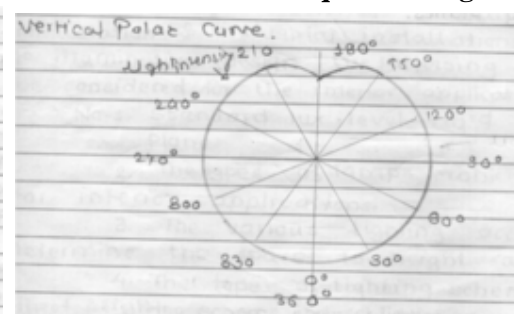 Vertical Polar Curve.
Light intensity 210 180° 150°
240° 120°
270° 90°
300 60°
330 30°
0°
360°